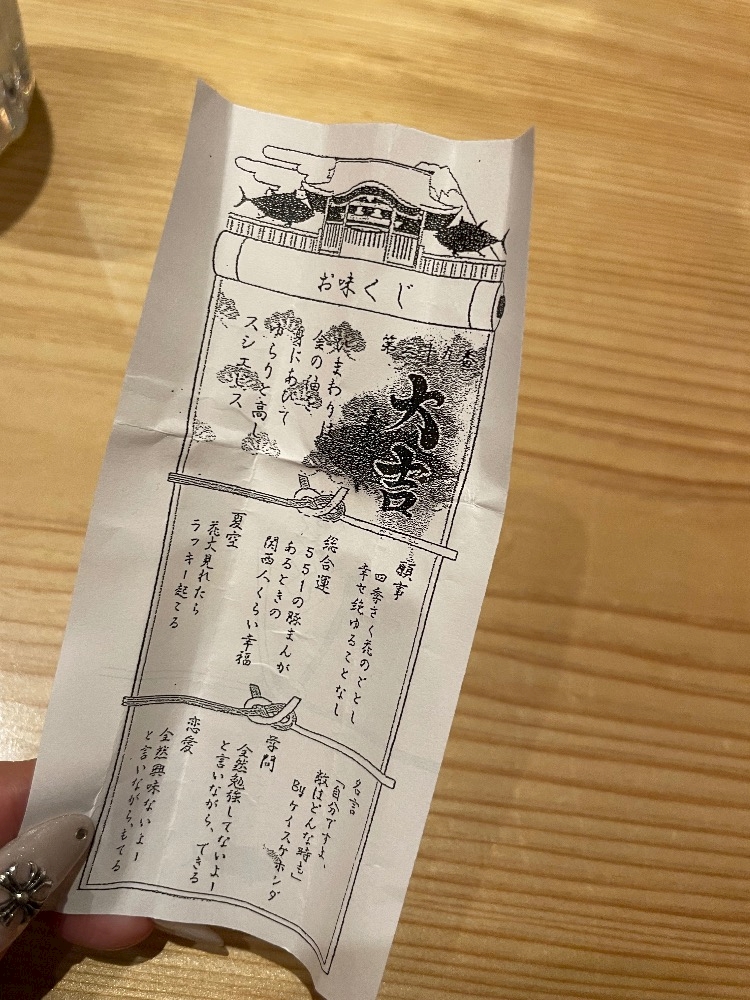 お味くじ
第 十九番
大吉
ひまわりは
金の油を
身にあびて
ゆらりと高し
スシエビス
願事
四季さく花のごとし
幸せ絶ゆることなし
総合運
551の豚まんが
あるときの
関西人くらい幸福
夏空
花火見れたら
ラッキー起てる
名言
「自分ですよ、
敵はどんな時も」
Byケイスケホンダ
学問
全然勉強してないよー
と言いながら、できる
恋愛
全然興味ないよー
と言いながら、もてる